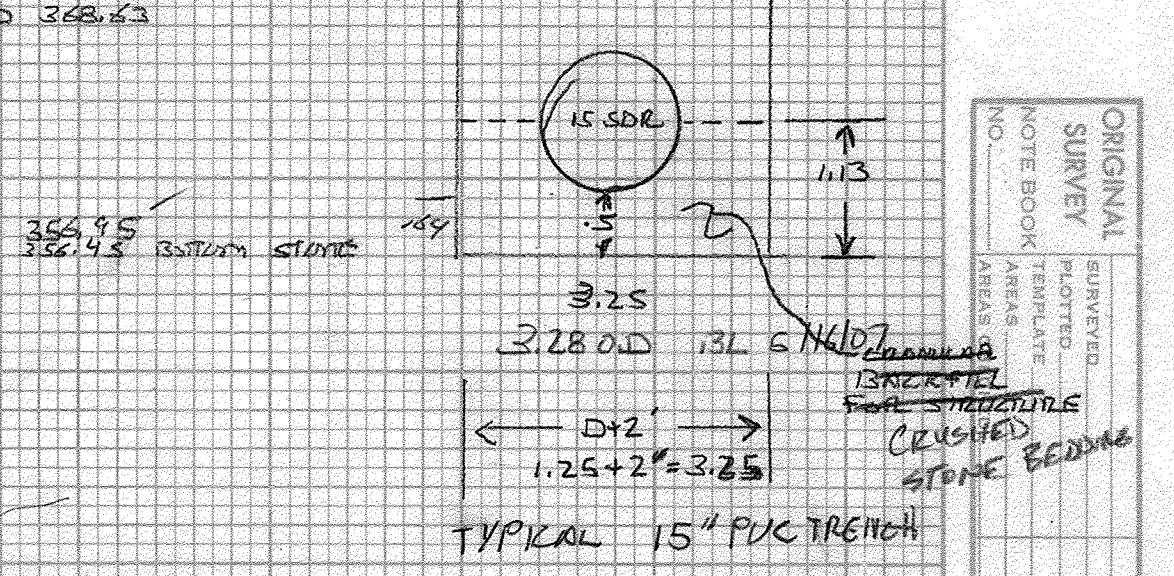 368.63
15 SDR
1.13
.5
356.95
356.45 BOTTOM STONE
3.25
3.28 O.D
D+2'
1.25+2'=3.25
GRANULAR
BACKFILL
FOR STRUCTURE
CRUSHED
STONE BEDDING
TYPICAL 15" PVC TRENCH
ORIGINAL
SURVEY
NOTE BOOK
NO.
SURVEYED
PLOTTED
TEMPLATE
AREAS
AREAS